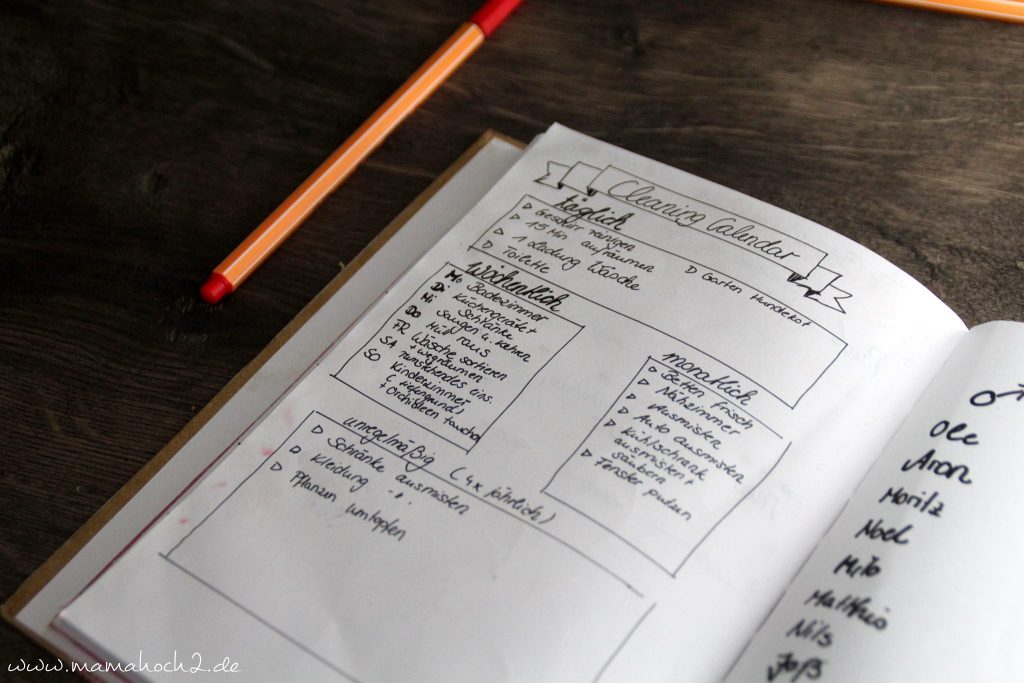 Cleaning Calendar
täglich
▷ Geschirr reinigen
▷ 15 Min aufräumen
▷ 1 Ladung Wäsche
▷ Toilette
▷ Garten Hundekot
wöchentlich
Mo Badezimmer
Di Küchengeräte +
Mi Schränke
Do Saugen u. kehren
FR Müll raus
SA Wäsche sortieren
SO + wegräumen
Kinderzimmer
+ Orchideen tauchen
monatlich
▷ Betten frisch
▷ Nähzimmer
Ausmisten
▷ Auto ausmisten
▷ Kühlschrank
ausmisten +
säubern
▷ Fenster putzen
unregelmäßig (4x jährlich)
▷ Schränke ausmisten
▷ Kleidung -"-
▷ Pflanzen umtopfen
♂
Ole
Aron
Moritz
Noel
Milo
Nils
www.mamahoch2.de